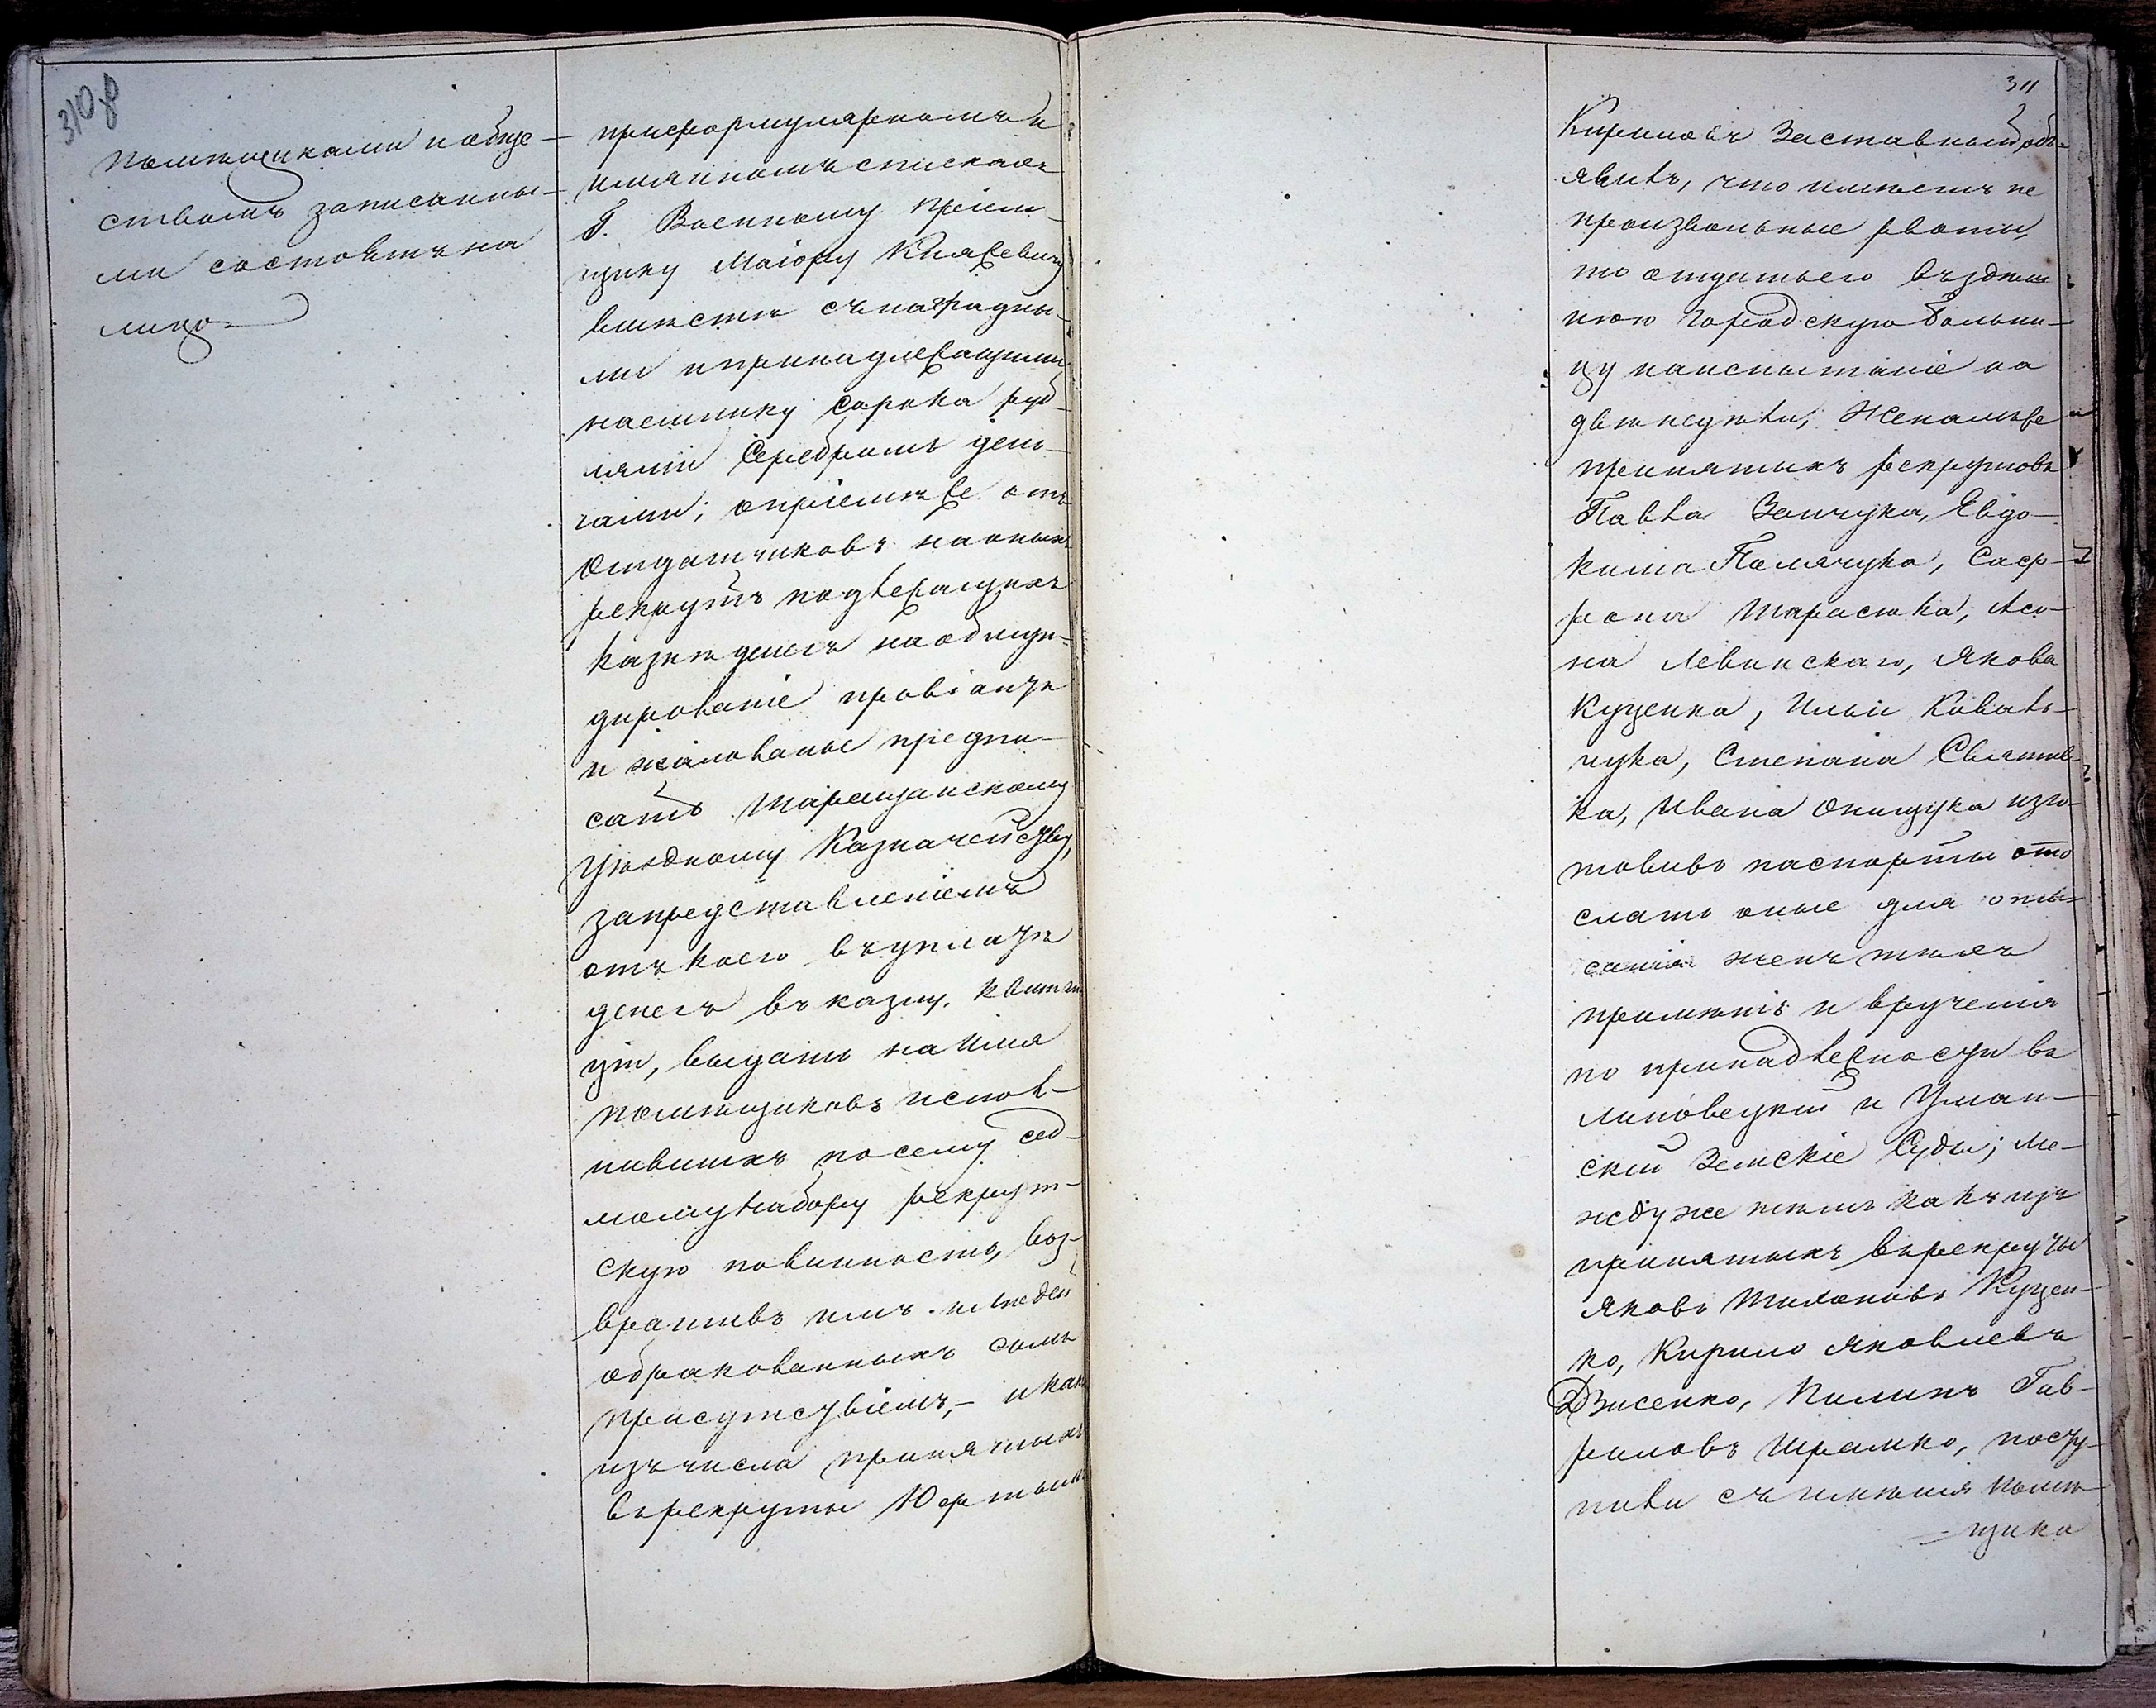 310 об
помѣщиками и обще-
ствомъ записанны-
ми состоятъ на
лицо
при формулярномъ и
имянномъ спискахъ
Г. Военному Пріем-
щику Маіору Княжевичу
вмѣстѣ съ наградны-
ми и принадлежащими
наемнику сорока руб-
лями серебромъ день-
гами; о пріемѣ же отъ
отдатчиковъ на оныхъ
рекрутъ подлежащихъ
казнѣ денегъ на обмун-
дированіе провіантъ
и жалованье предпи-
сать Таращанскому
Уѣздному Казначейству,
за представленіемъ
отъ коего въ уплатѣ
денегъ въ казну, квитан
ціи, выдать на имя
помѣщиковъ испол-
нившихъ по сему сед-
мому набору рекрут-
скую повинность, воз-
вративъ имъ и людей
обракованныхъ симъ
присутствіемъ, - и какъ
изъ числа принятыхъ
въ рекруты
311
Кириловъ Заставный объ-
явилъ, что имѣетъ не
произвольные рвоты,
то отдать его въ здѣш
нюю городскую больни-
цу на испытаніе на
двѣ недѣли; Женамъ же
принятыхъ рекрутовъ
Павла Заичука, Евдо-
кима Полячука, Саф-
рона Тарасюка,
Левинскаго, Якова
Куценка, Ильи Коваль-
чука, Степана
Ивана Онищука изго-
товивъ паспорты ото
слать оные для отыс
санія женъ тѣхъ
примѣтъ и врученія
по принадлежности въ
Липовецкій и Уман-
скій Земскіе Суды; Ме-
жду же тѣмъ какъ изъ
принятыхъ въ рекруты
Яковъ Тихоновъ Куцен-
ко, Кирило Яковлевъ
Дзисенко, Пилипъ Гав-
риловъ Шрамко, посту-
пили съ имѣнія помѣ-
щика